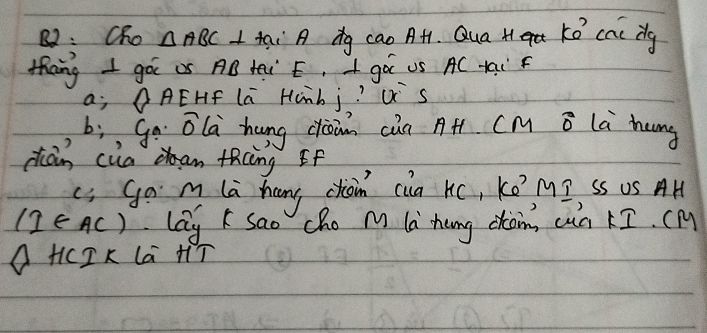 B2: Cho △ABC ⊥ tại A đg cao AH. Qua H kẻ các đg
thẳng ⊥ góc vs AB tại E, ⊥ góc vs AC tại F
a; ◊ AEHF là Hình j? Vì s
b; Gọi O là trung điểm của AH. CM O là trung
điểm của đoạn thẳng EF
c; Gọi M là trung điểm của HC, kẻ MI ss vs AH
(I ∈ AC). Lấy K sao cho M là trung điểm của KI. CM
◊ HCIK là HT